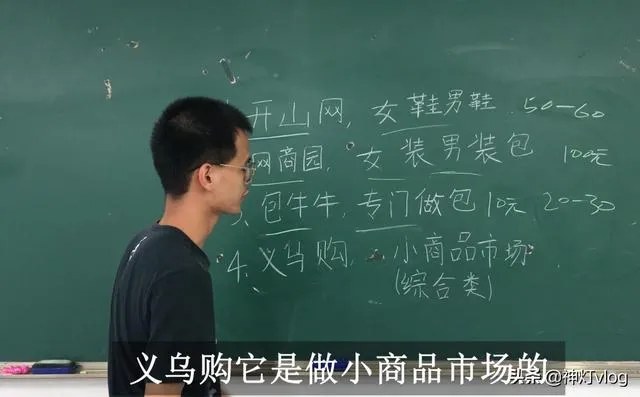 开山网, 女鞋男鞋 50-60
网商园, 女装男装包 100元
3、包牛牛, 专门做包 10元 20-30
4、义乌购, 小商品市场
(综合类)
义乌购它是做小商品市场的
头条@神灯vlog